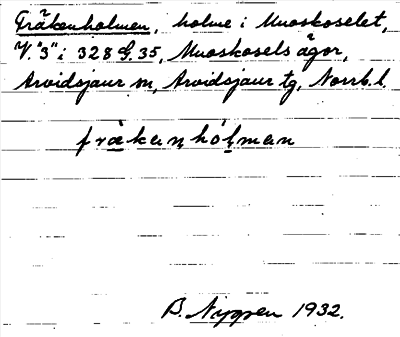 Fräkenholmen, holme i Muoskoselet,
V. "3" i 328 G. 35, Muoskosels ägor,
Arvidsjaur sn, Arvidsjaur tg, Norrb. l.
fràkanhólman
B. Nygren 1932.